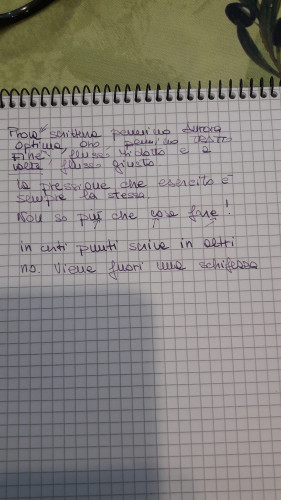 Prova scrittura pennino Aurora
Optima, oro, pennino destro
Fine, flusso ridotto e a
volte flusso giusto
la pressione che esercito è
sempre la stessa
Non so più che cosa fare!
in certi punti scrive in altri
no. Viene fuori una schifezza